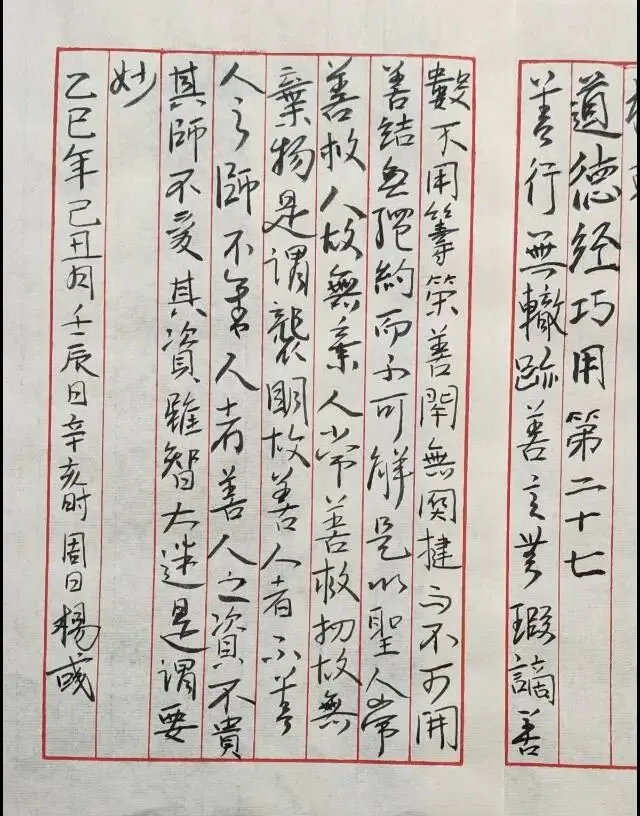 道德经巧用第二十七
善行無轍跡善言無瑕謫善
數不用籌策善閉無関揵而不可開
善結無繩約而不可解是以聖人常
善救人故無棄人常善救物故無
棄物是谓襲明故善人者不善
人之師不善人者善人之資不貴
其師不愛其資雖智大迷是謂要
妙
乙巳年己丑月壬辰日辛亥时周日楊彧